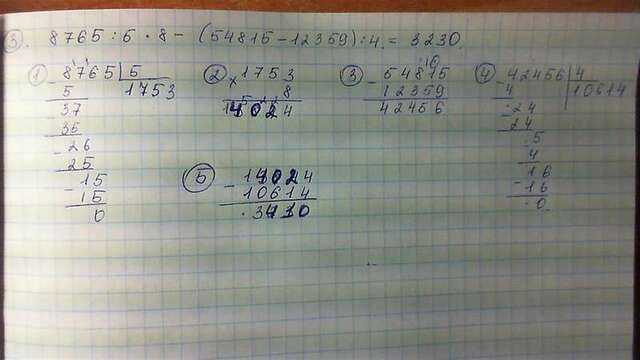 3. 8765 : 5 · 8 - (54815 - 12359) : 4 = 3230
1 - 8765 | 5 2 × 1753 3 - 54815 4 - 42456 | 4
5 1753 8 12359 4 10614
- 37 42456 - 24
35 24
- 26 5
25 5 - 14024 4
- 15 10614 16
15 - 16
0 0